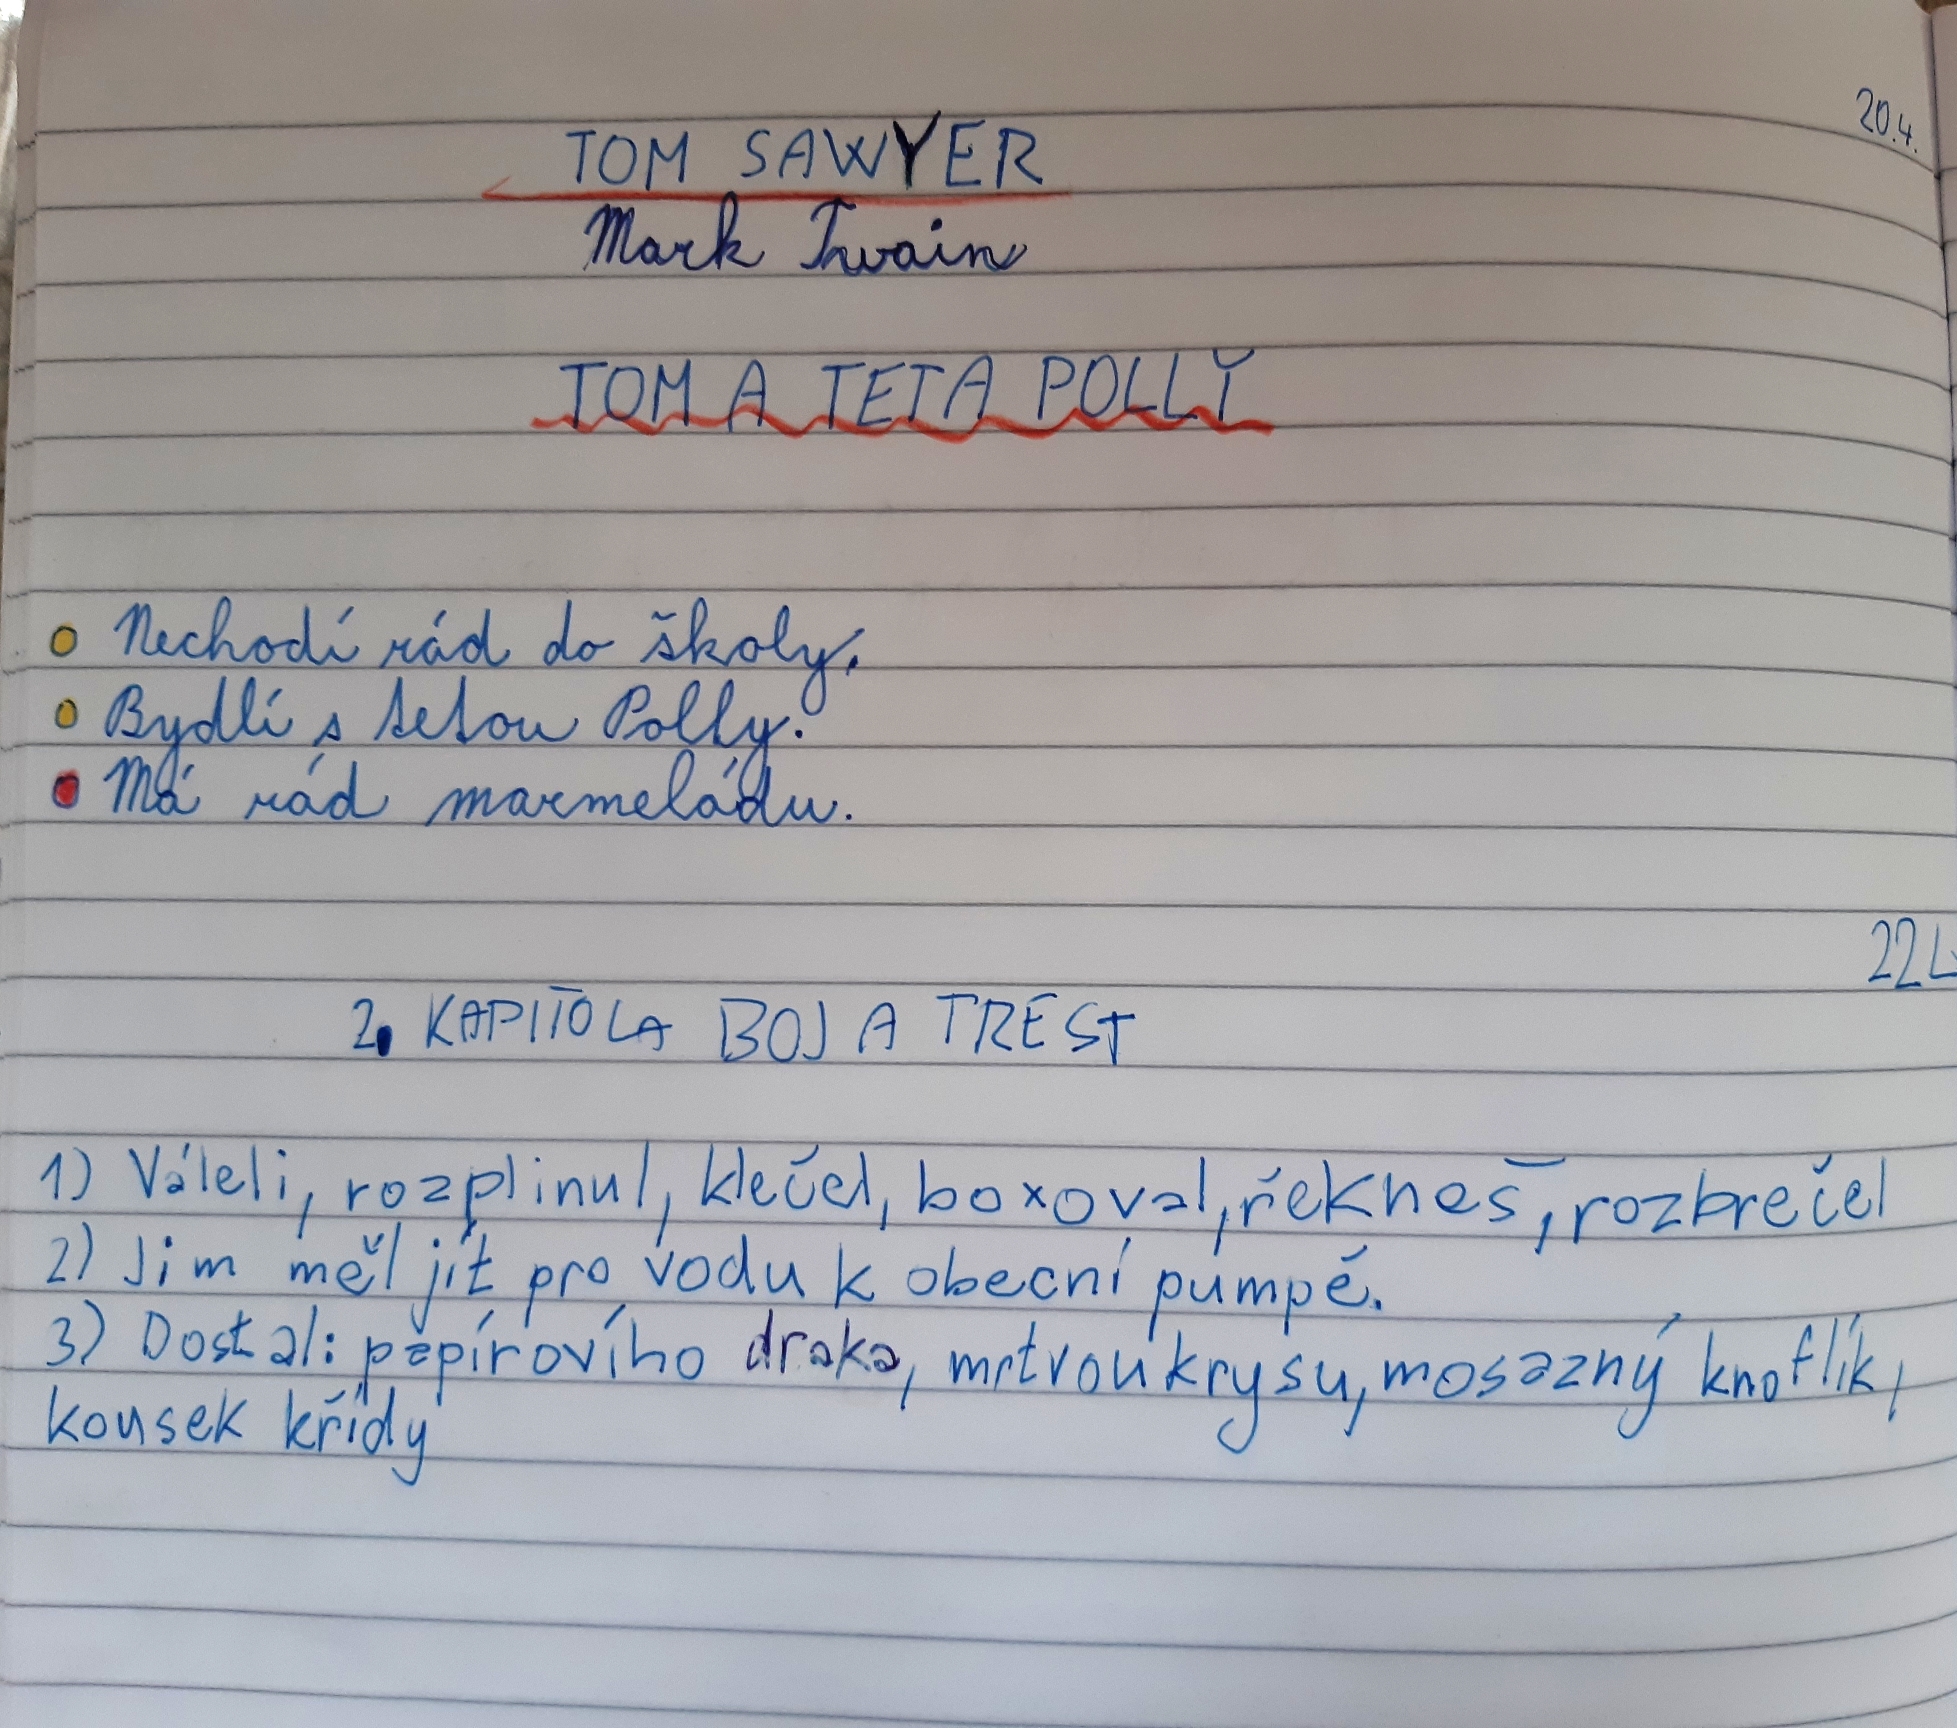 20.4.
TOM SAWYER
Mark Twain
TOM A TETA POLLY
Nechodí rád do školy.
Bydlí s tetou Polly.
Má rád marmeládu.
2. KAPITOLA BOJ A TREST
1) Váleli, rozplinul, klečel, boxoval, řekneš, rozbrečel
2) Jim měl jít pro vodu k obecní pumpě.
3) Dostal: papírovího draka, mrtvou krysu, mosazný knoflík,
kousek křídy